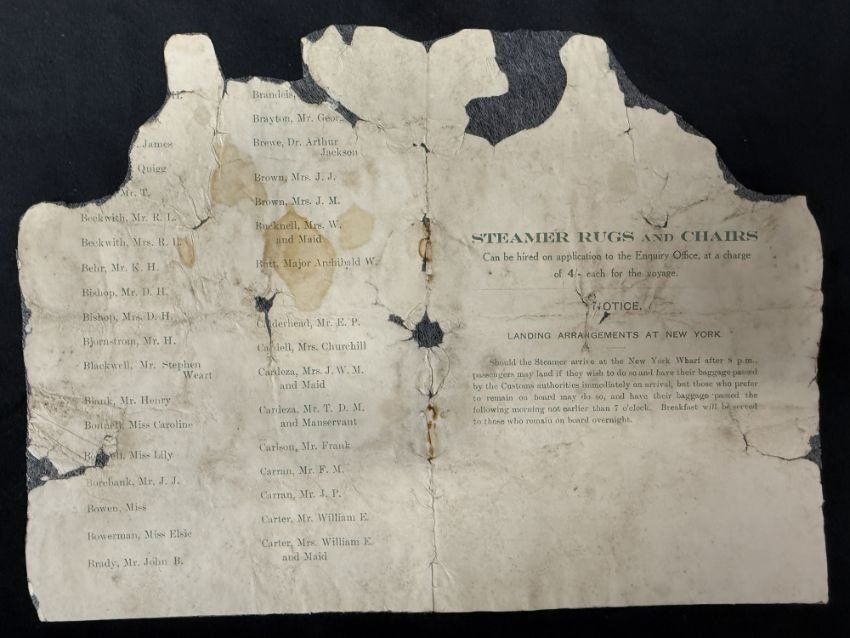 H.
James
Quigg
Mr. T.
Beckwith, Mr. R. L.
Beckwith, Mrs. R. L.
Behr, Mr. K. H.
Bishop, Mr. D. H.
Bishop, Mrs. D. H.
Bjornstrom, Mr. H.
Blackwell, Mr. Stephen
Weart
Blank, Mr. Henry
Bonnell, Miss Caroline
Miss Lily
Borebank, Mr. J. J.
Bowen, Miss
Bowerman, Miss Elsie
Brady, Mr. John B.
Brandeis,
Brayton, Mr. Georg
Brewe, Dr. Arthur
Jackson
Brown, Mrs. J. J.
Brown, Mrs. J. M.
Bucknell, Mrs. W.
and Maid
Butt, Major Archibald W.
Calderhead, Mr. E. P.
Cardell, Mrs. Churchill
Cardeza, Mrs. J. W. M.
and Maid
Cardeza, Mr. T. D. M.
and Manservant
Carlson, Mr. Frank
Carran, Mr. F. M.
Carran, Mr. J. P.
Carter, Mr. William E.
Carter, Mrs. William E.
and Maid
STEAMER RUGS AND CHAIRS
Can be hired on application to the Enquiry Office, at a charge
of 4/- each for the voyage.
NOTICE.
LANDING ARRANGEMENTS AT NEW YORK.
Should the Steamer arrive at the New York Wharf after 8 p.m.,
passengers may land if they wish to do so and have their baggage passed
by the Customs authorities immediately on arrival, but those who prefer
to remain on board may do so, and have their baggage passed the
following morning not earlier than 7 o'clock. Breakfast will be served
to those who remain on board overnight.